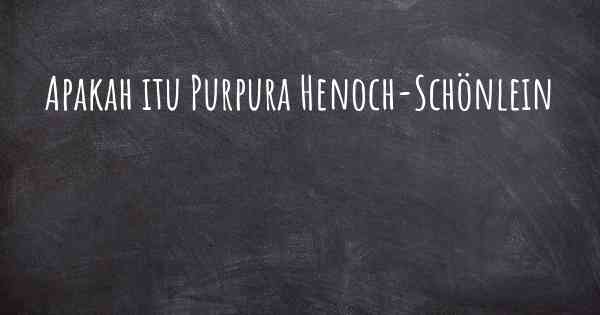 Apakah itu Purpura Henoch-Schönlein